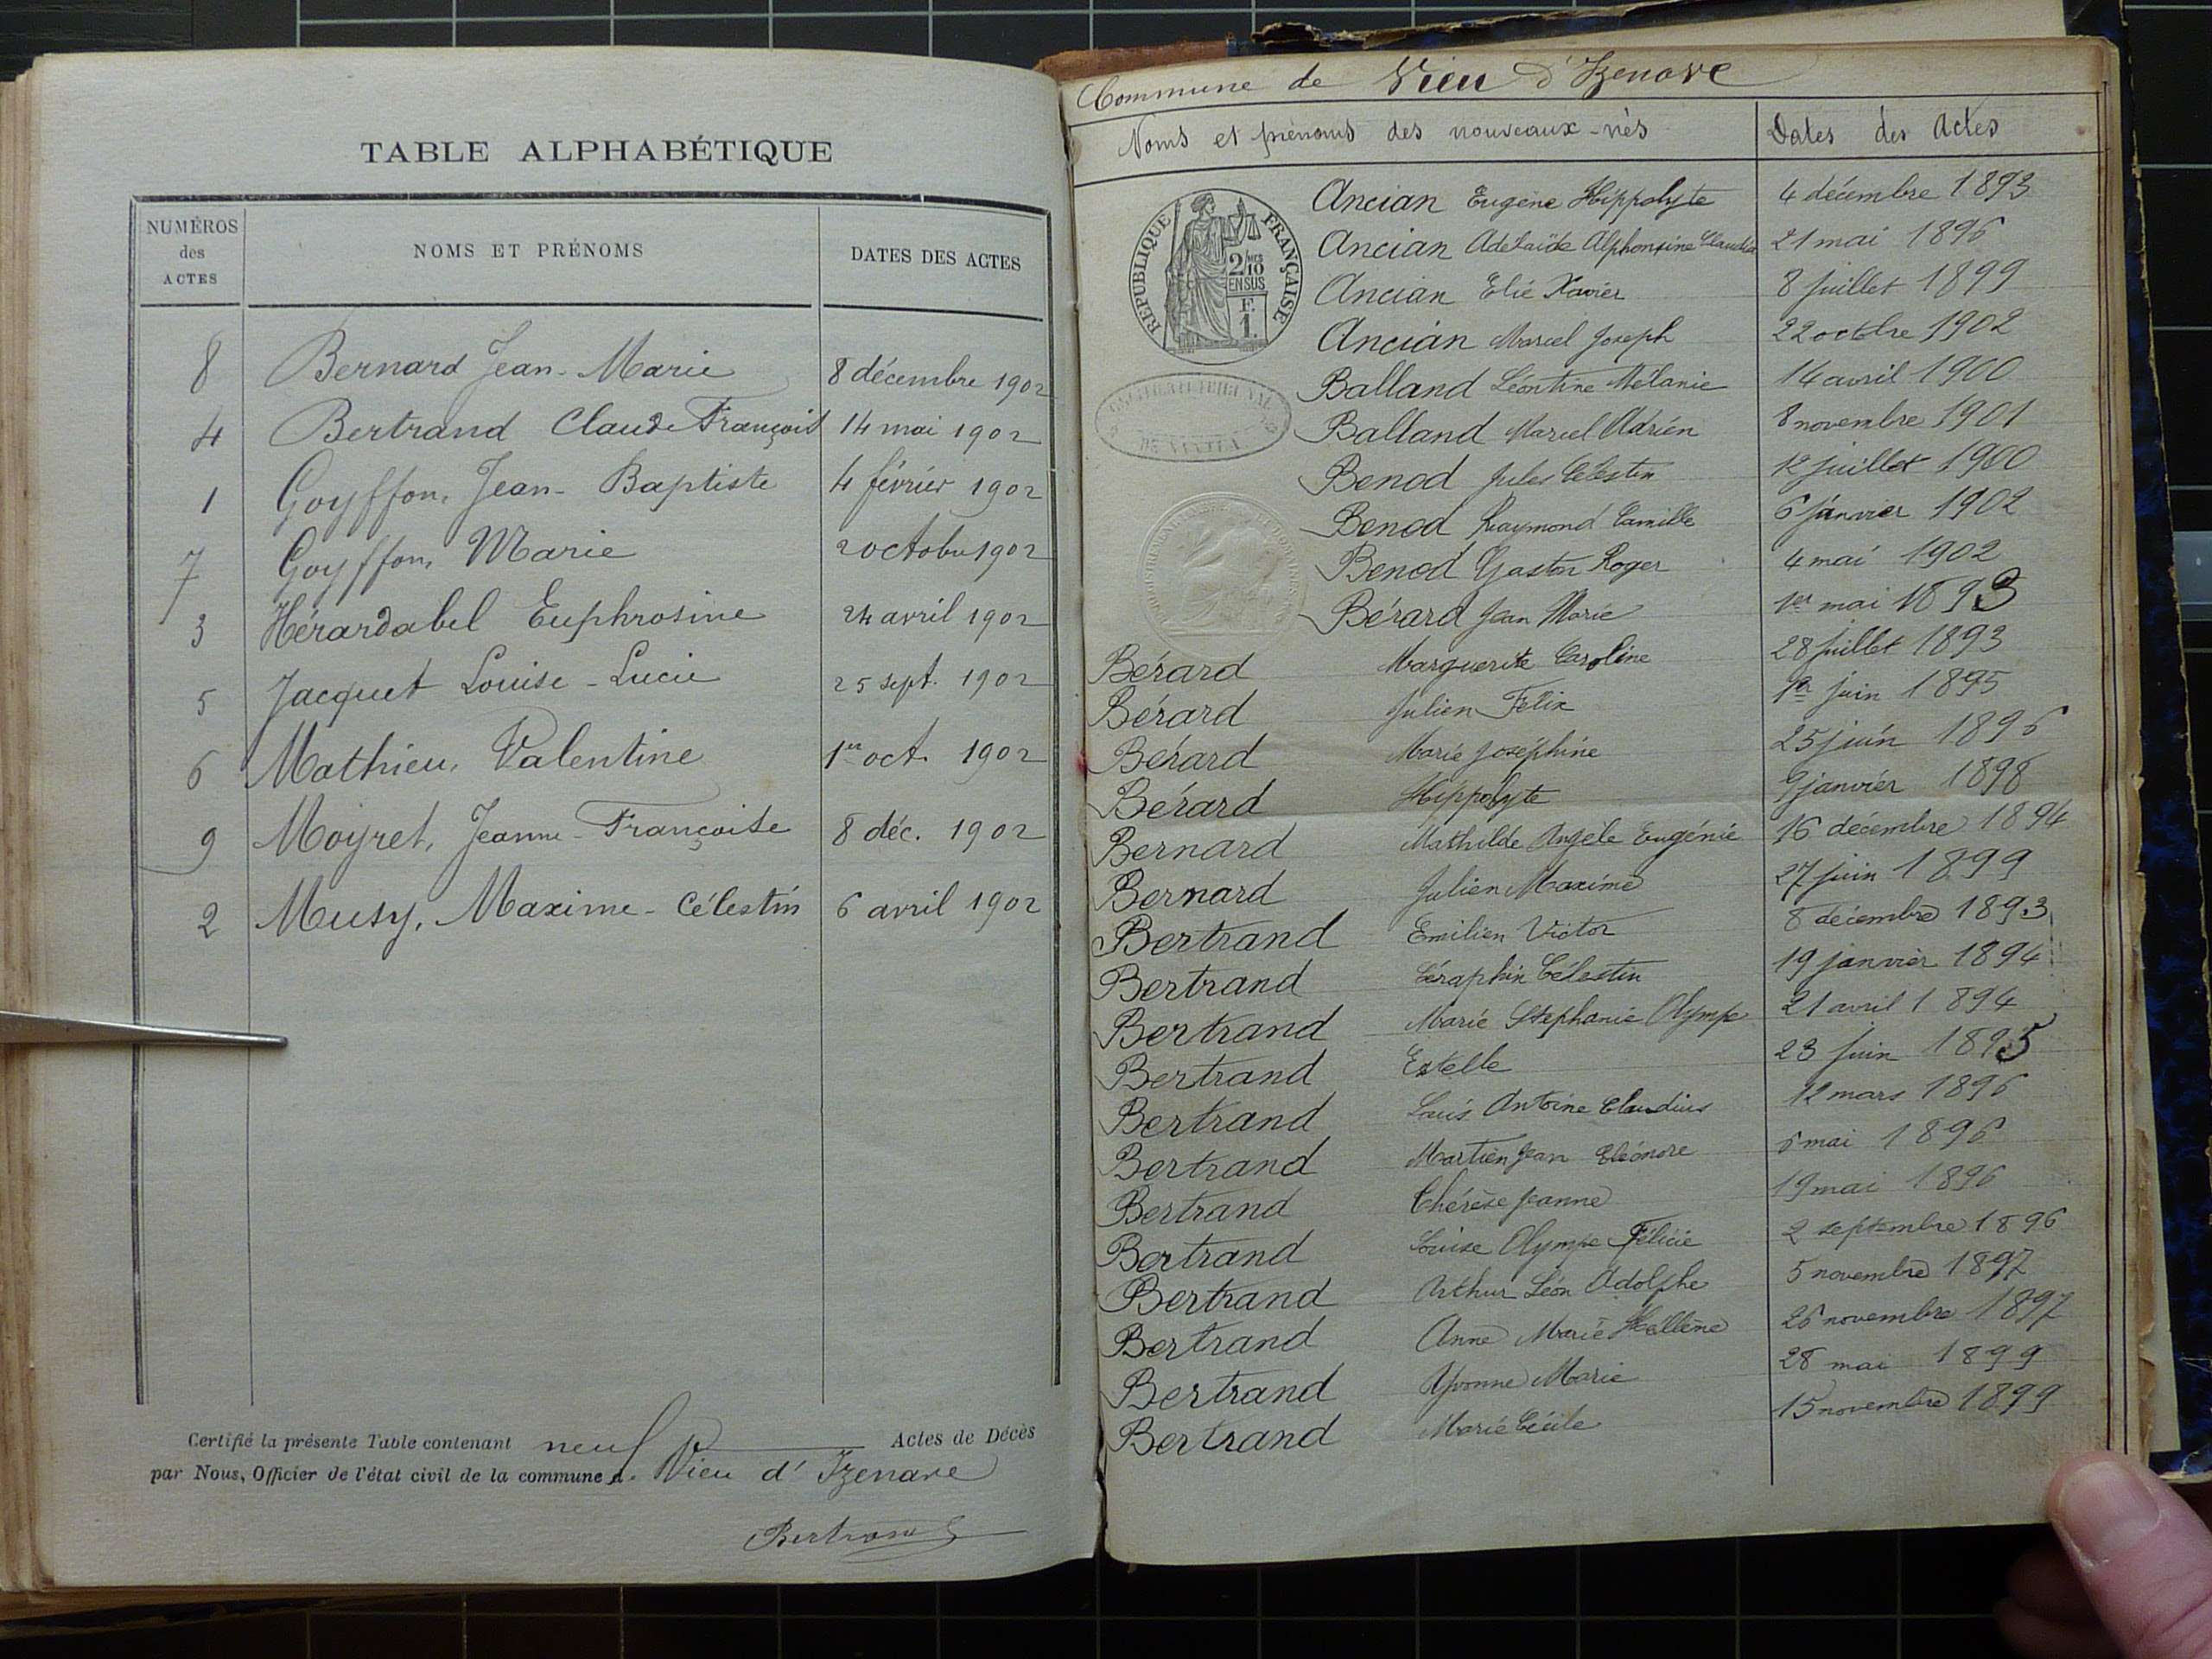 TABLE ALPHABÉTIQUE
NUMÉROS des ACTES
NOMS ET PRÉNOMS
DATES DES ACTES
8 Bernard Jean-Marie 8 décembre 1902
4 Bertrand Claude François 14 mai 1902
1 Goyffon, Jean-Baptiste 4 février 1902
7 Goyffon, Marie 2 octobre 1902
3 Hérardabel Euphrosine 24 avril 1902
5 Jacquet Louise-Lucie 25 sept. 1902
6 Mathieu, Valentine 1er oct. 1902
9 Moyret, Jeanne-Françoise 8 déc. 1902
2 Musy, Maxime-Célestin 6 avril 1902
Certifié la présente Table contenant neuf Actes de Décès
par Nous, Officier de l'état civil de la commune d. Vieu d'Izenave
Bertrand
Commune de Vieu d'Izenave
Noms et prénoms des nouveaux-nés
Dates des Actes
RÉPUBLIQUE FRANÇAISE
2/10 MES
EN SUS
F.
1.
Ancian Eugène Hippolyte 4 décembre 1893
Ancian Adélaïde Alphonsine Claudia 21 mai 1896
Ancian Elie Xavier 8 juillet 1899
Ancian Marcel Joseph 22 octobre 1902
Balland Léontine Mélanie 14 avril 1900
Balland Marcel Adrien 8 novembre 1901
Benod Jules Célestin 12 juillet 1900
Benod Raymond Camille 6 janvier 1902
Benod Gaston Roger 4 mai 1902
Bérard Jean Marie 1er mai 1893
Bérard Marguerite Caroline 28 juillet 1893
Bérard Julien Félix 1er juin 1895
Bérard Marie Joséphine 25 juin 1896
Bérard Hippolyte 9 janvier 1898
Bernard Mathilde Angèle Eugénie 16 décembre 1894
Bernard Julien Maxime 27 juin 1899
Bertrand Emilien Victor 8 décembre 1893
Bertrand Séraphin Célestin 19 janvier 1894
Bertrand Marie Stephanie Olympe 21 avril 1894
Bertrand Estelle 23 juin 1895
Bertrand Louis Antoine Claudius 12 mars 1896
Bertrand Martien Jean Eléonore 6 mai 1896
Bertrand Thérèse Jeanne 19 mai 1896
Bertrand Louise Olympe Félicie 2 septembre 1896
Bertrand Arthur Léon Adolphe 5 novembre 1897
Bertrand Anne Marie Hellène 26 novembre 1897
Bertrand Yvonne Marie 28 mai 1899
Bertrand Marie Cécile 15 novembre 1899